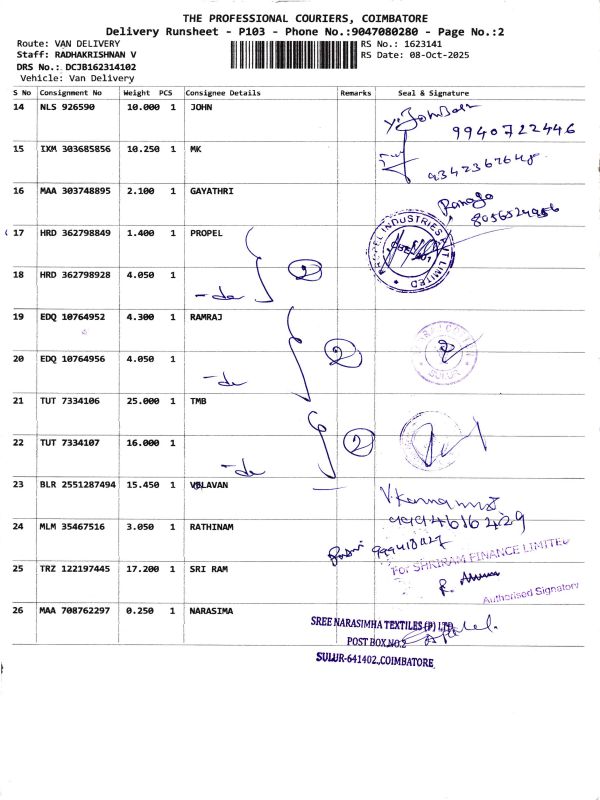 THE PROFESSIONAL COURIERS, COIMBATORE
Delivery Runsheet - P103 - Phone No.:9047080280 - Page No.:2
Route: VAN DELIVERY
RS No.: 1623141
Staff: RADHAKRISHNAN V
RS Date: 08-Oct-2025
DRS No.: DCJB162314102
Vehicle: Van Delivery
S No Consignment No Weight PCS Consignee Details Remarks Seal & Signature
14 NLS 926590 10.000 1 JOHN
9940722446
15 IXM 303685856 10.250 1 MK
16 MAA 303748895 2.100 1 GAYATHRI
Ranga
8056524956
17 HRD 362798849 1.400 1 PROPEL
PROPEL INDUSTRIES PVT LIMITED
18 HRD 362798928 4.050 1
- do 2
19 EDQ 10764952 4.300 1 RAMRAJ
20 EDQ 10764956 4.050 1
- do 2
SULUR
21 TUT 7334106 25.000 1 TMB
22 TUT 7334107 16.000 1
- do 2
23 BLR 2551287494 15.450 1 VELAVAN
9994616429
24 MLM 35467516 3.050 1 RATHINAM
25 TRZ 122197445 17.200 1 SRI RAM
For SHRIRAM FINANCE LIMITED
Authorised Signatory
26 MAA 708762297 0.250 1 NARASIMA
SREE NARASIMHA TEXTILES (P) LTD
POST BOX.NO.2
SULUR-641402.,COIMBATORE